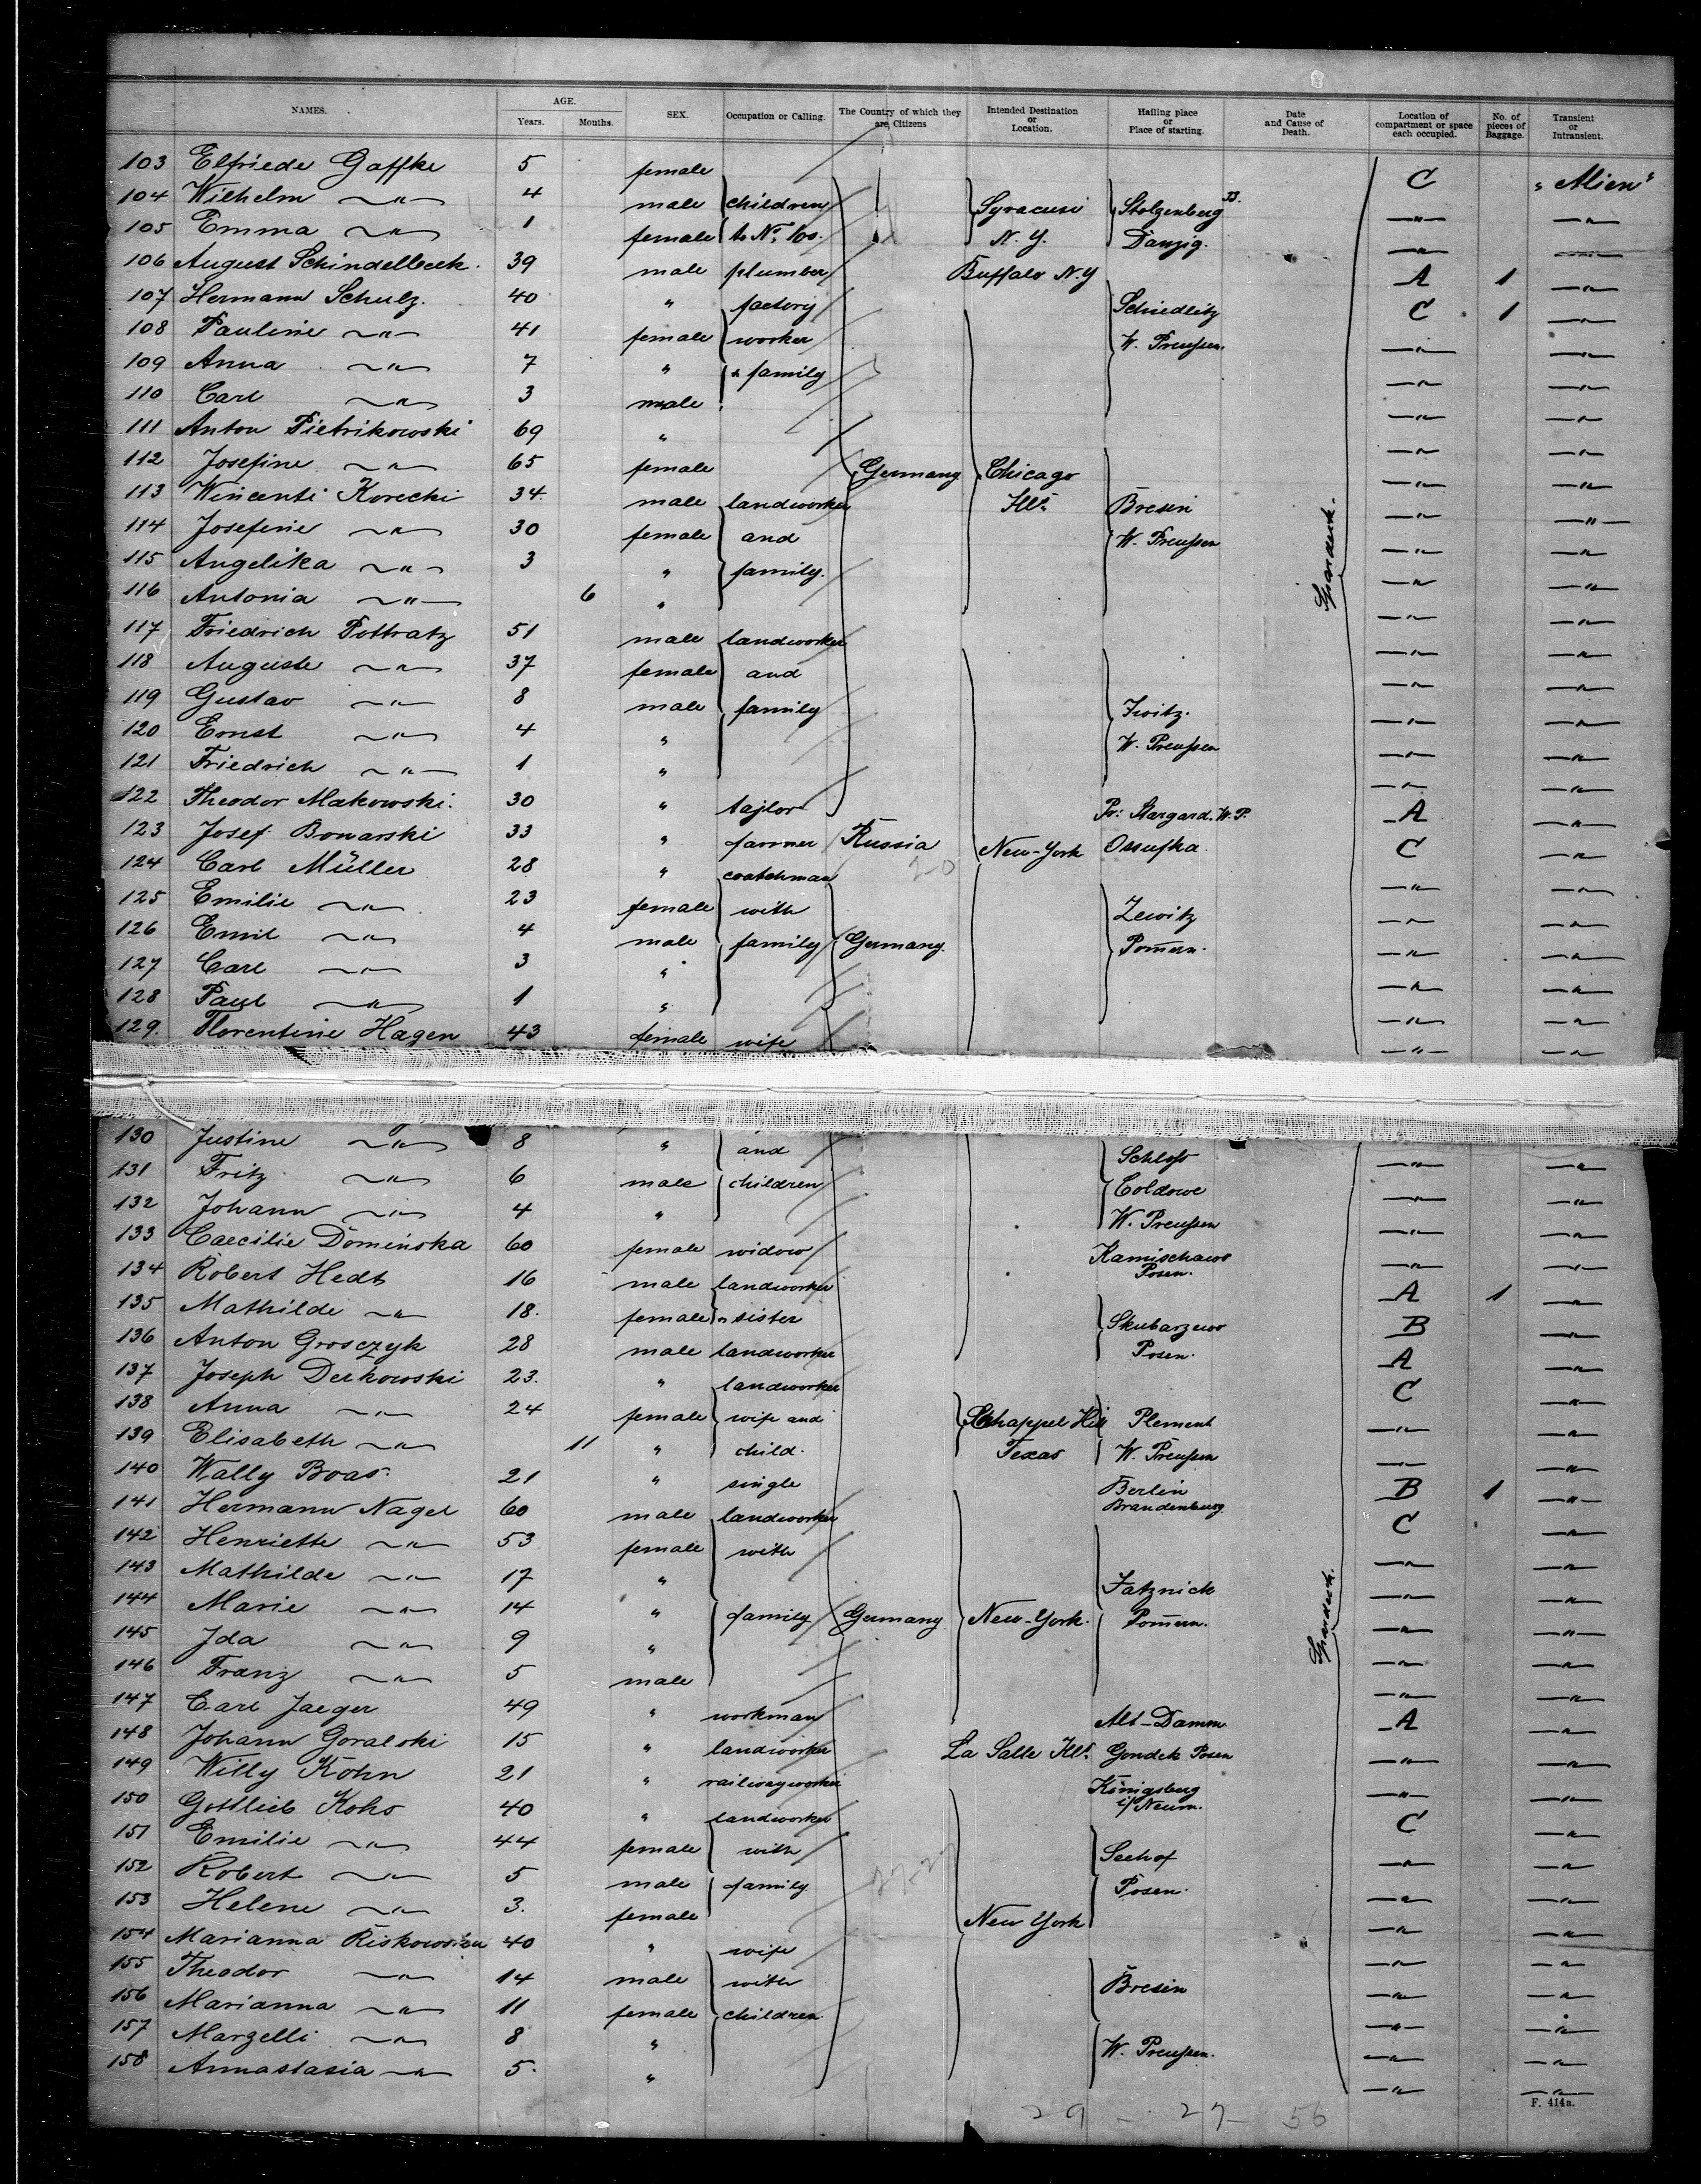 NAMES. AGE. Years. Months. SEX. Occupation or Calling. The Country of which they are Citizens Intended Destination or Location. Hailing place or Place of starting. Date and Cause of Death. Location of compartment or space each occupied. No. of pieces of Baggage. Transient or Intransient.
103 Elfriede Gaffke 5 female C "Alien"
104 Wilhelm —"— 4 male children Syracuse Stolzenberg —"— —"—
105 Emma —"— 1 female to No. 100. N. Y. Danzig. —"— —"—
106 August Schindelbeck. 39 male plumber Buffalo N.Y A 1 —"—
107 Hermann Schulz. 40 " factory Schiedlitz C 1 —"—
108 Pauline —"— 41 female worker W. Preußen. —"— —"—
109 Anna —"— 7 " & family —"— —"—
110 Carl —"— 3 male —"— —"—
111 Anton Pietrikowski 69 " —"— —"—
112 Josefine —"— 65 female Germany Chicago —"— —"—
113 Wincenti Korecki 34 male landworker Ills. Bresin —"— —"—
114 Josefine —"— 30 female and W. Preußen —"— —"—
115 Angelika —"— 3 " family. —"— —"—
116 Antonia —"— 6 " —"— —"—
117 Friedrich Pottratz 51 male landworker —"— —"—
118 Auguste —"— 37 female and —"— —"—
119 Gustav —"— 8 male family Zwitz. —"— —"—
120 Ernst —"— 4 " W. Preußen —"— —"—
121 Friedrich —"— 1 " —"— —"—
122 Theodor Makowski. 30 " taylor Pr: Stargard. W. P. A —"—
123 Josef Bonarski 33 " farmer Russia New-York Ossufka. C —"—
124 Carl Müller 28 " coatchman —"— —"—
125 Emilie —"— 23 female with Zewitz —"— —"—
126 Emil —"— 4 male family Germany. Pomern. —"— —"—
127 Carl —"— 3 " —"— —"—
128 Paul —"— 1 " —"— —"—
129. Florentine Hagen 43 female wife —"— —"—
130 Justine —"— 8 " and Schloß —"— —"—
131 Fritz —"— 6 male children Coldowe —"— —"—
132 Johann —"— 4 " W. Preußen —"— —"—
133 Caecilie Dominska 60 female widow Kamischawo Posen. —"— —"—
134 Robert Hedt 16 male landworker A 1 —"—
135 Mathilde —"— 18. female " sister Skubarzewo B —"—
136 Anton Grosczyk 28 male landworker Posen. A —"—
137 Joseph Derkowski 23. " landworker C —"—
138 Anna —"— 24 female wife and Chappel Hill Plement —"— —"—
139 Elisabeth —"— 11 " child. Texas W. Preußen —"— —"—
140 Wally Boas. 21 " single Berlin Brandenburg B 1 —"—
141 Hermann Nagel 60 male landworker C —"—
142 Henriette —"— 53 female with —"— —"—
143 Mathilde —"— 17 " Jatznick —"— —"—
144 Marie —"— 14 " family Germany New-York. Pomern. —"— —"—
145 Ida —"— 9 " —"— —"—
146 Franz —"— 5 male —"— —"—
147 Carl Jaeger 49 " workman Alt-Damm A —"—
148 Johann Goralski 15 " landworker La Salle Ills. Gondek Posen —"— —"—
149 Willy Kohn 21 " railwayworker Königsberg i/Neum. —"— —"—
150 Gottlieb Kohs 40 " landworker C —"—
151 Emilie —"— 44 female with Seehof —"— —"—
152 Robert —"— 5 male family Posen. —"— —"—
153 Helene —"— 3. female New York —"— —"—
154 Marianna 40 " wife —"— —"—
155 Theodor —"— 14 male with Bresin —"— —"—
156 Marianna —"— 11 female children —"— —"—
157 Margelli —"— 8 " W. Preußen. —"— —"—
158 Annastasia —"— 5. " —"— —"—
29 - 27- 56
F. 414a.